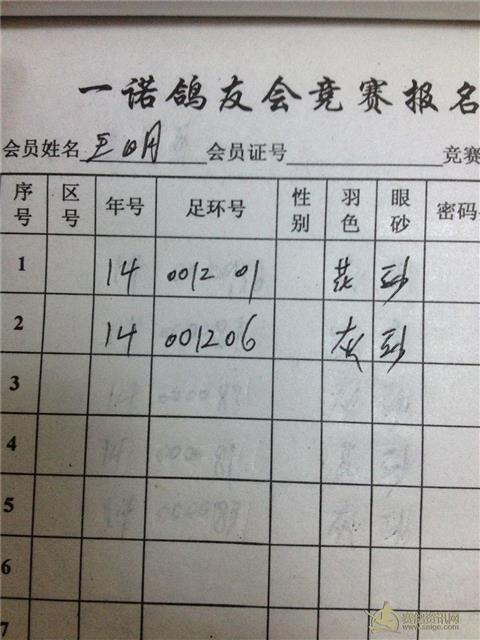 一诺鸽友会竞赛报名
会员姓名 王明 会员证号 竞赛
序号 区号 年号 足环号 性别 羽色 眼砂 密码
1 14 001201 花 砂
2 14 001206 灰 砂
3
4
5
6
7
赛鸽资讯网
www.saige.com